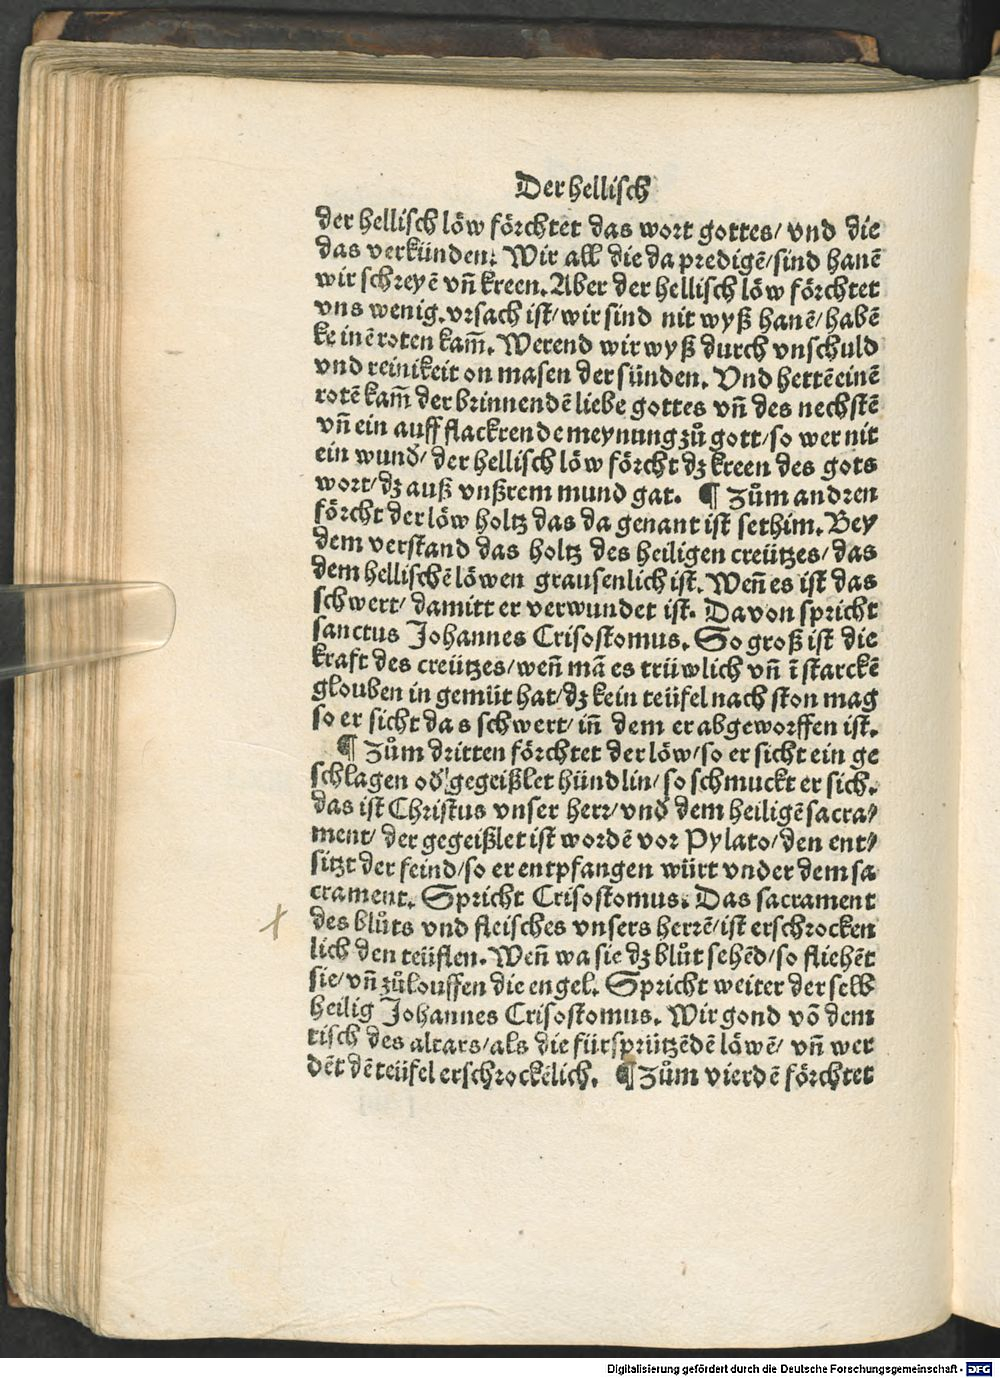 Der hellisch
der hellisch löw förchtet das wort gottes/ vnd die
das verkünden. Wir all die da predigē/sind hanē
wir schreyē vn̄ kreen. Aber der hellisch löw förchtet
vns wenig. vrsach ist/wir sind nit wyß hanē/habē
keinē roten kam̄. Werend wir wyß durch vnschuld
vnd reinikeit on masen der sünden. Vnd hettē einē
rotē kam̄ der brinnendē liebe gottes vn̄ des nechstē
vn̄ ein auff flackrende meynung zů gott/so wer nit
ein wund̕/ der hellisch löw förcht dz kreen des gots
wort/dz auß vnßrem mund gat. ¶ Zům andren
förcht der löw holtz das da genant ist sethim. Bey
dem verstand das holtz des heiligen creützes/das
dem hellischē löwen grausenlich ist. Wen̄ es ist das
schwert/ damitt er verwundet ist. Davon spricht
sanctus Johannes Crisostomus. So groß ist die
kraft des creützes/wen̄ mā es trüwlich vn̄ ī starckē
glouben in gemüt hat/dz kein teüfel nach ston mag
so er sicht das schwert/in̄ dem er abgeworffen ist.
¶ Zům dritten förchtet der löw/so er sicht ein ge
schlagen od̕ gegeißlet hündlin/so schmuckt er sich.
das ist Christus vnser herr/vnd̕ dem heiligē sacra⸗
ment/ der gegeißlet ist wordē vor Pylato/den ent⸗
sitzt der feind/so er entpfangen würt vnder dem sa
crament. Spricht Crisostomus. Das sacrament
des blůts vnd fleisches vnsers herrē/ist erschrocken
lich den teüflen. Wen̄ wa sie dz blůt sehēd/so fliehēt
sie/vn̄ zůlouffen die engel. Spricht weiter der selb
heilig Johannes Crisostomus. Wir gond vō dem
tisch des altars/als die fürsprützēdē löwē/ vn̄ wer
dēt dē teüfel erschrockēlich. ¶ Zům vierdē förchtet
Digitalisierung gefördert durch die Deutsche Forschungsgemeinschaft - DFG